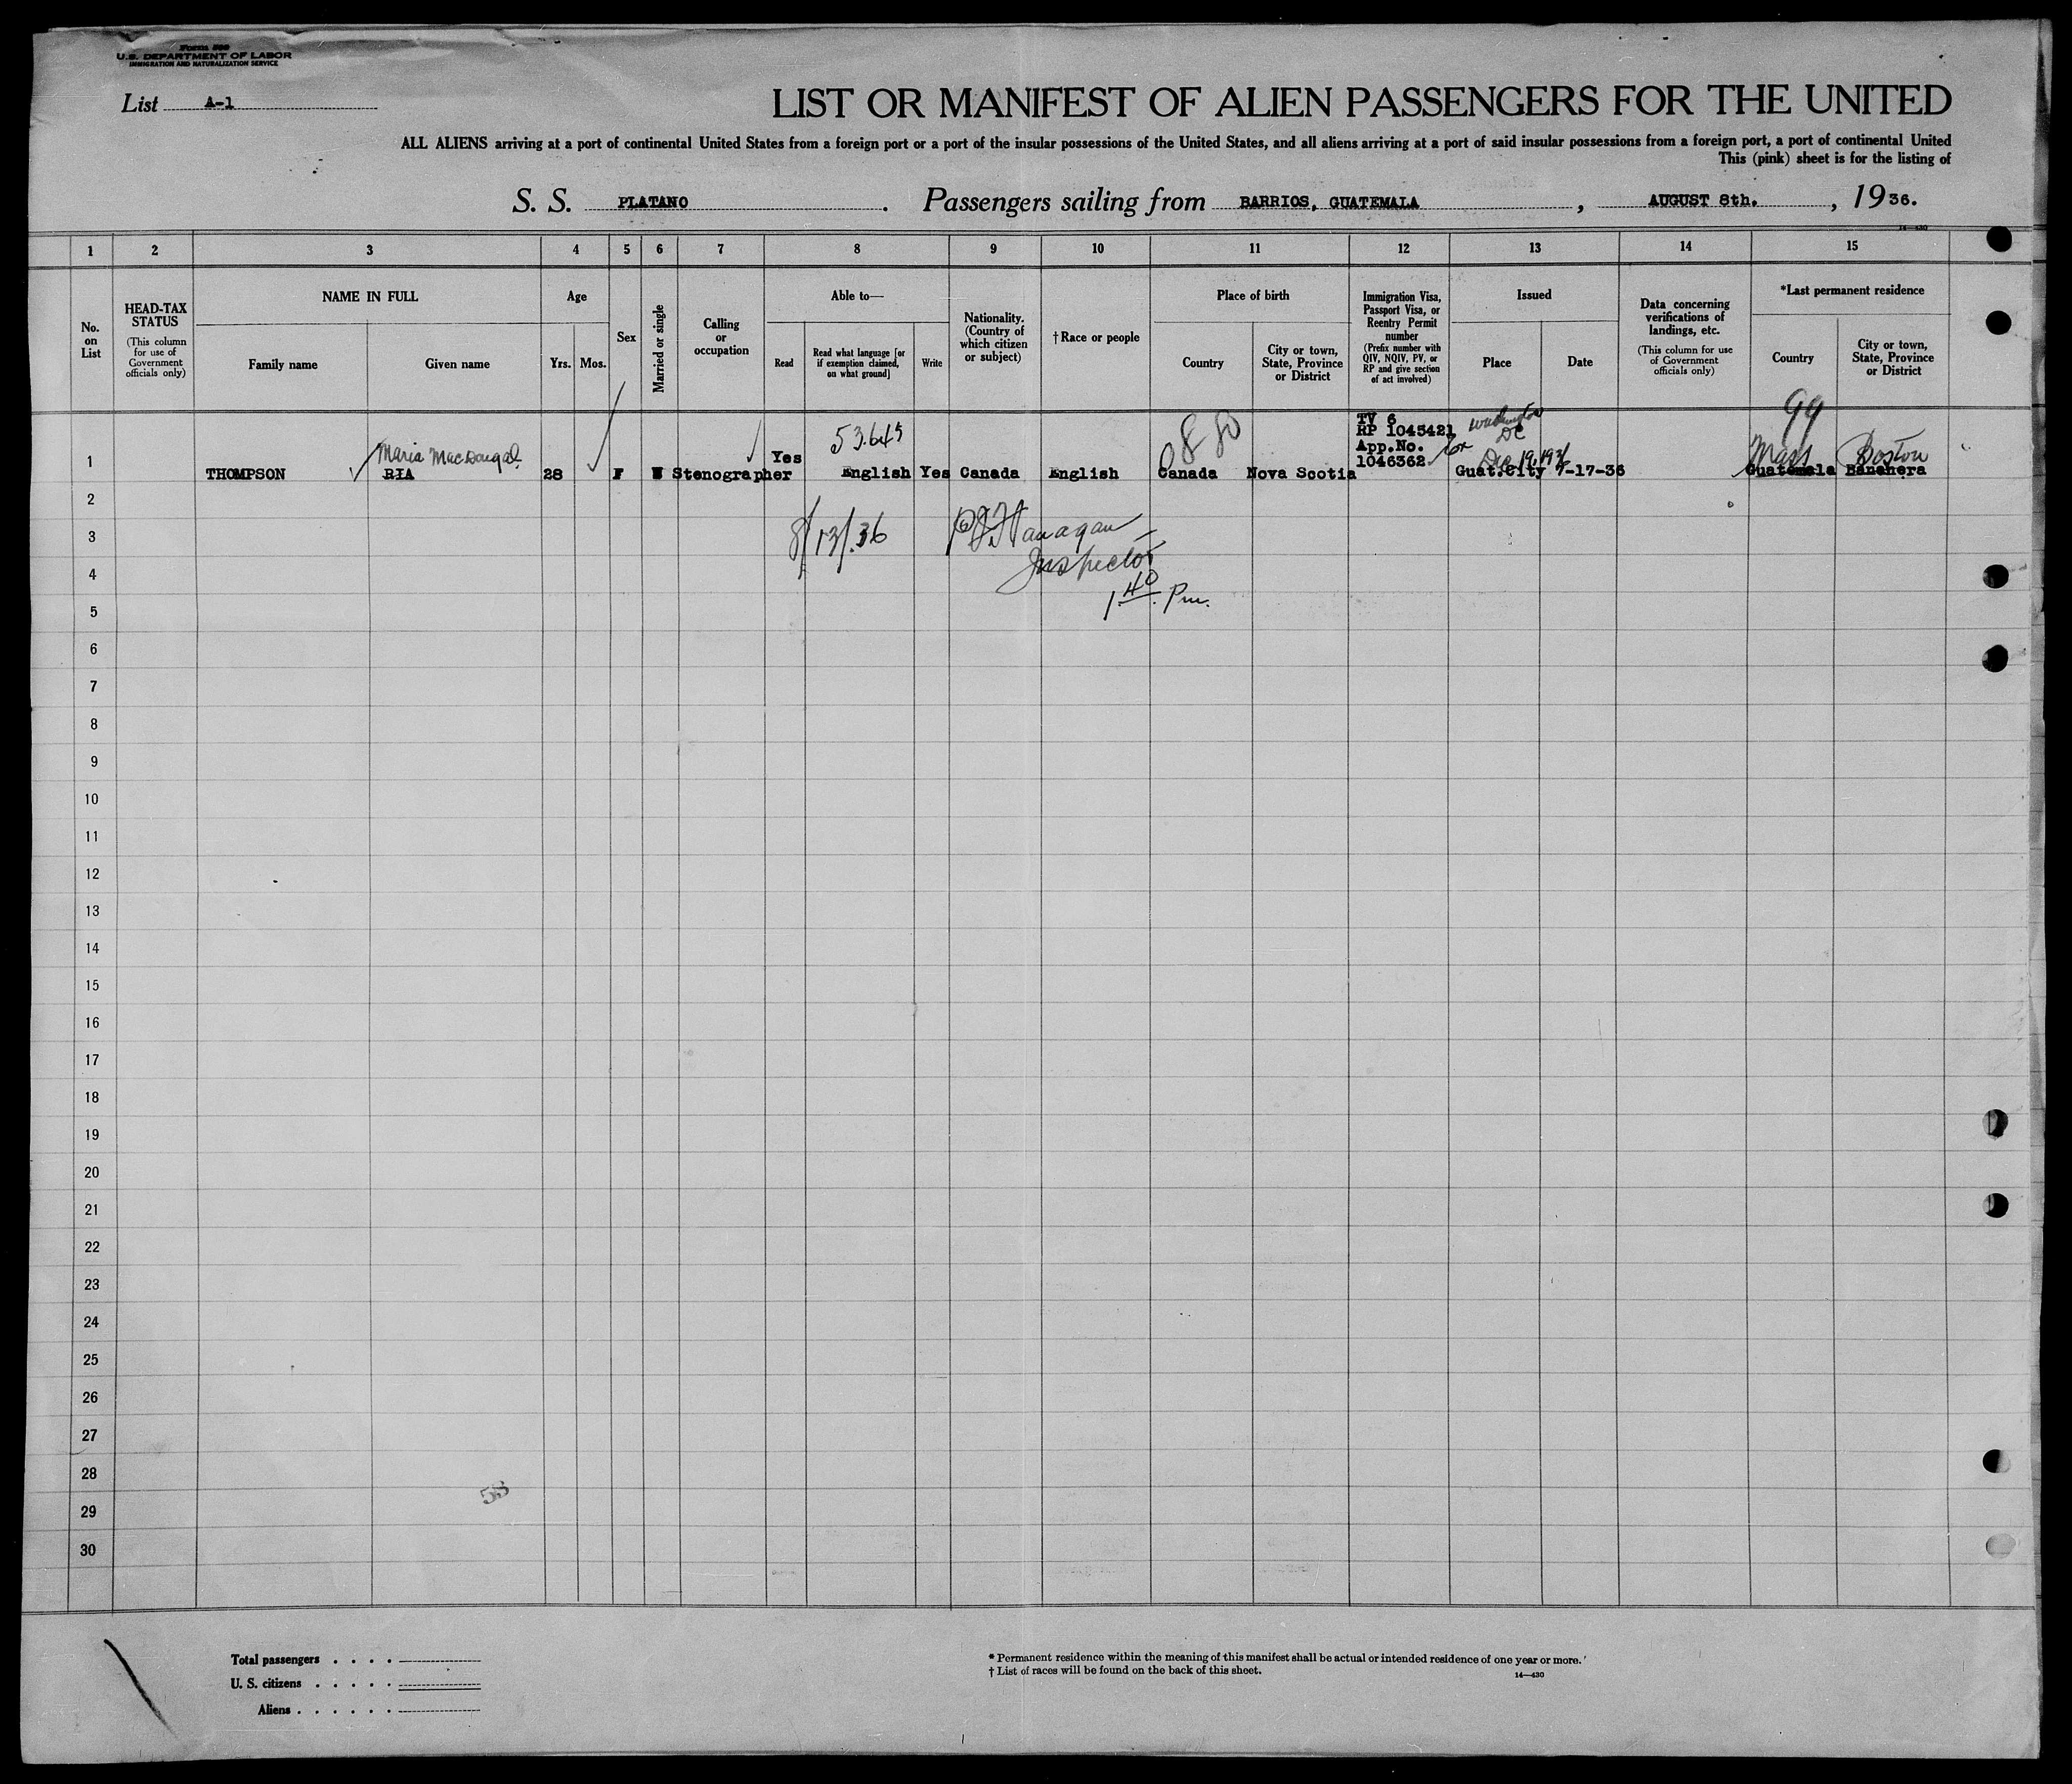 Form 500
U.S. DEPARTMENT OF LABOR
IMMIGRATION AND NATURALIZATION SERVICE
List A-1
LIST OR MANIFEST OF ALIEN PASSENGERS FOR THE UNITED
ALL ALIENS arriving at a port of continental United States from a foreign port or a port of the insular possessions of the United States, and all aliens arriving at a port of said insular possessions from a foreign port, a port of continental United
This (pink) sheet is for the listing of
S. S. PLATANO. Passengers sailing from BARRIOS, GUATEMALA, AUGUST 8th., 1936.
14—430
1 2 3 4 5 6 7 8 9 10 11 12 13 14 15
No. on List
HEAD-TAX STATUS
(This column for use of Government officials only)
NAME IN FULL
Family name
Given name
Age
Yrs. Mos.
Sex
Married or single
Calling or occupation
Able to—
Read
Read what language [or if exemption claimed, on what ground]
Write
Nationality. (Country of which citizen or subject)
†Race or people
Place of birth
Country
City or town, State, Province or District
Immigration Visa, Passport Visa, or Reentry Permit number
(Prefix number with QIV, NQIV, PV, or RP and give section of act involved)
Issued
Place
Date
Data concerning verifications of landings, etc.
(This column for use of Government officials only)
*Last permanent residence
Country
City or town, State, Province or District
99
53645
880
TV 6
RP 1045421
App.No.
1046362
Washington
DC
Dec 19, 193
Maria MacDougal
Mass Boston
1 THOMPSON RIA 28 F Stenographer Yes English Yes Canada English Canada Nova Scotia Guat.City 7-17-36 Guatemala Bananera
2
3 8/13/36 Flanagan
Inspector
4
1 40 Pm.
5
6
7
8
9
10
11
12
13
14
15
16
17
18
19
20
21
22
23
24
25
26
27
28
58
29
30
Total passengers . . . .
U. S. citizens . . . . .
Aliens . . . . . .
* Permanent residence within the meaning of this manifest shall be actual or intended residence of one year or more.
† List of races will be found on the back of this sheet.
14—430